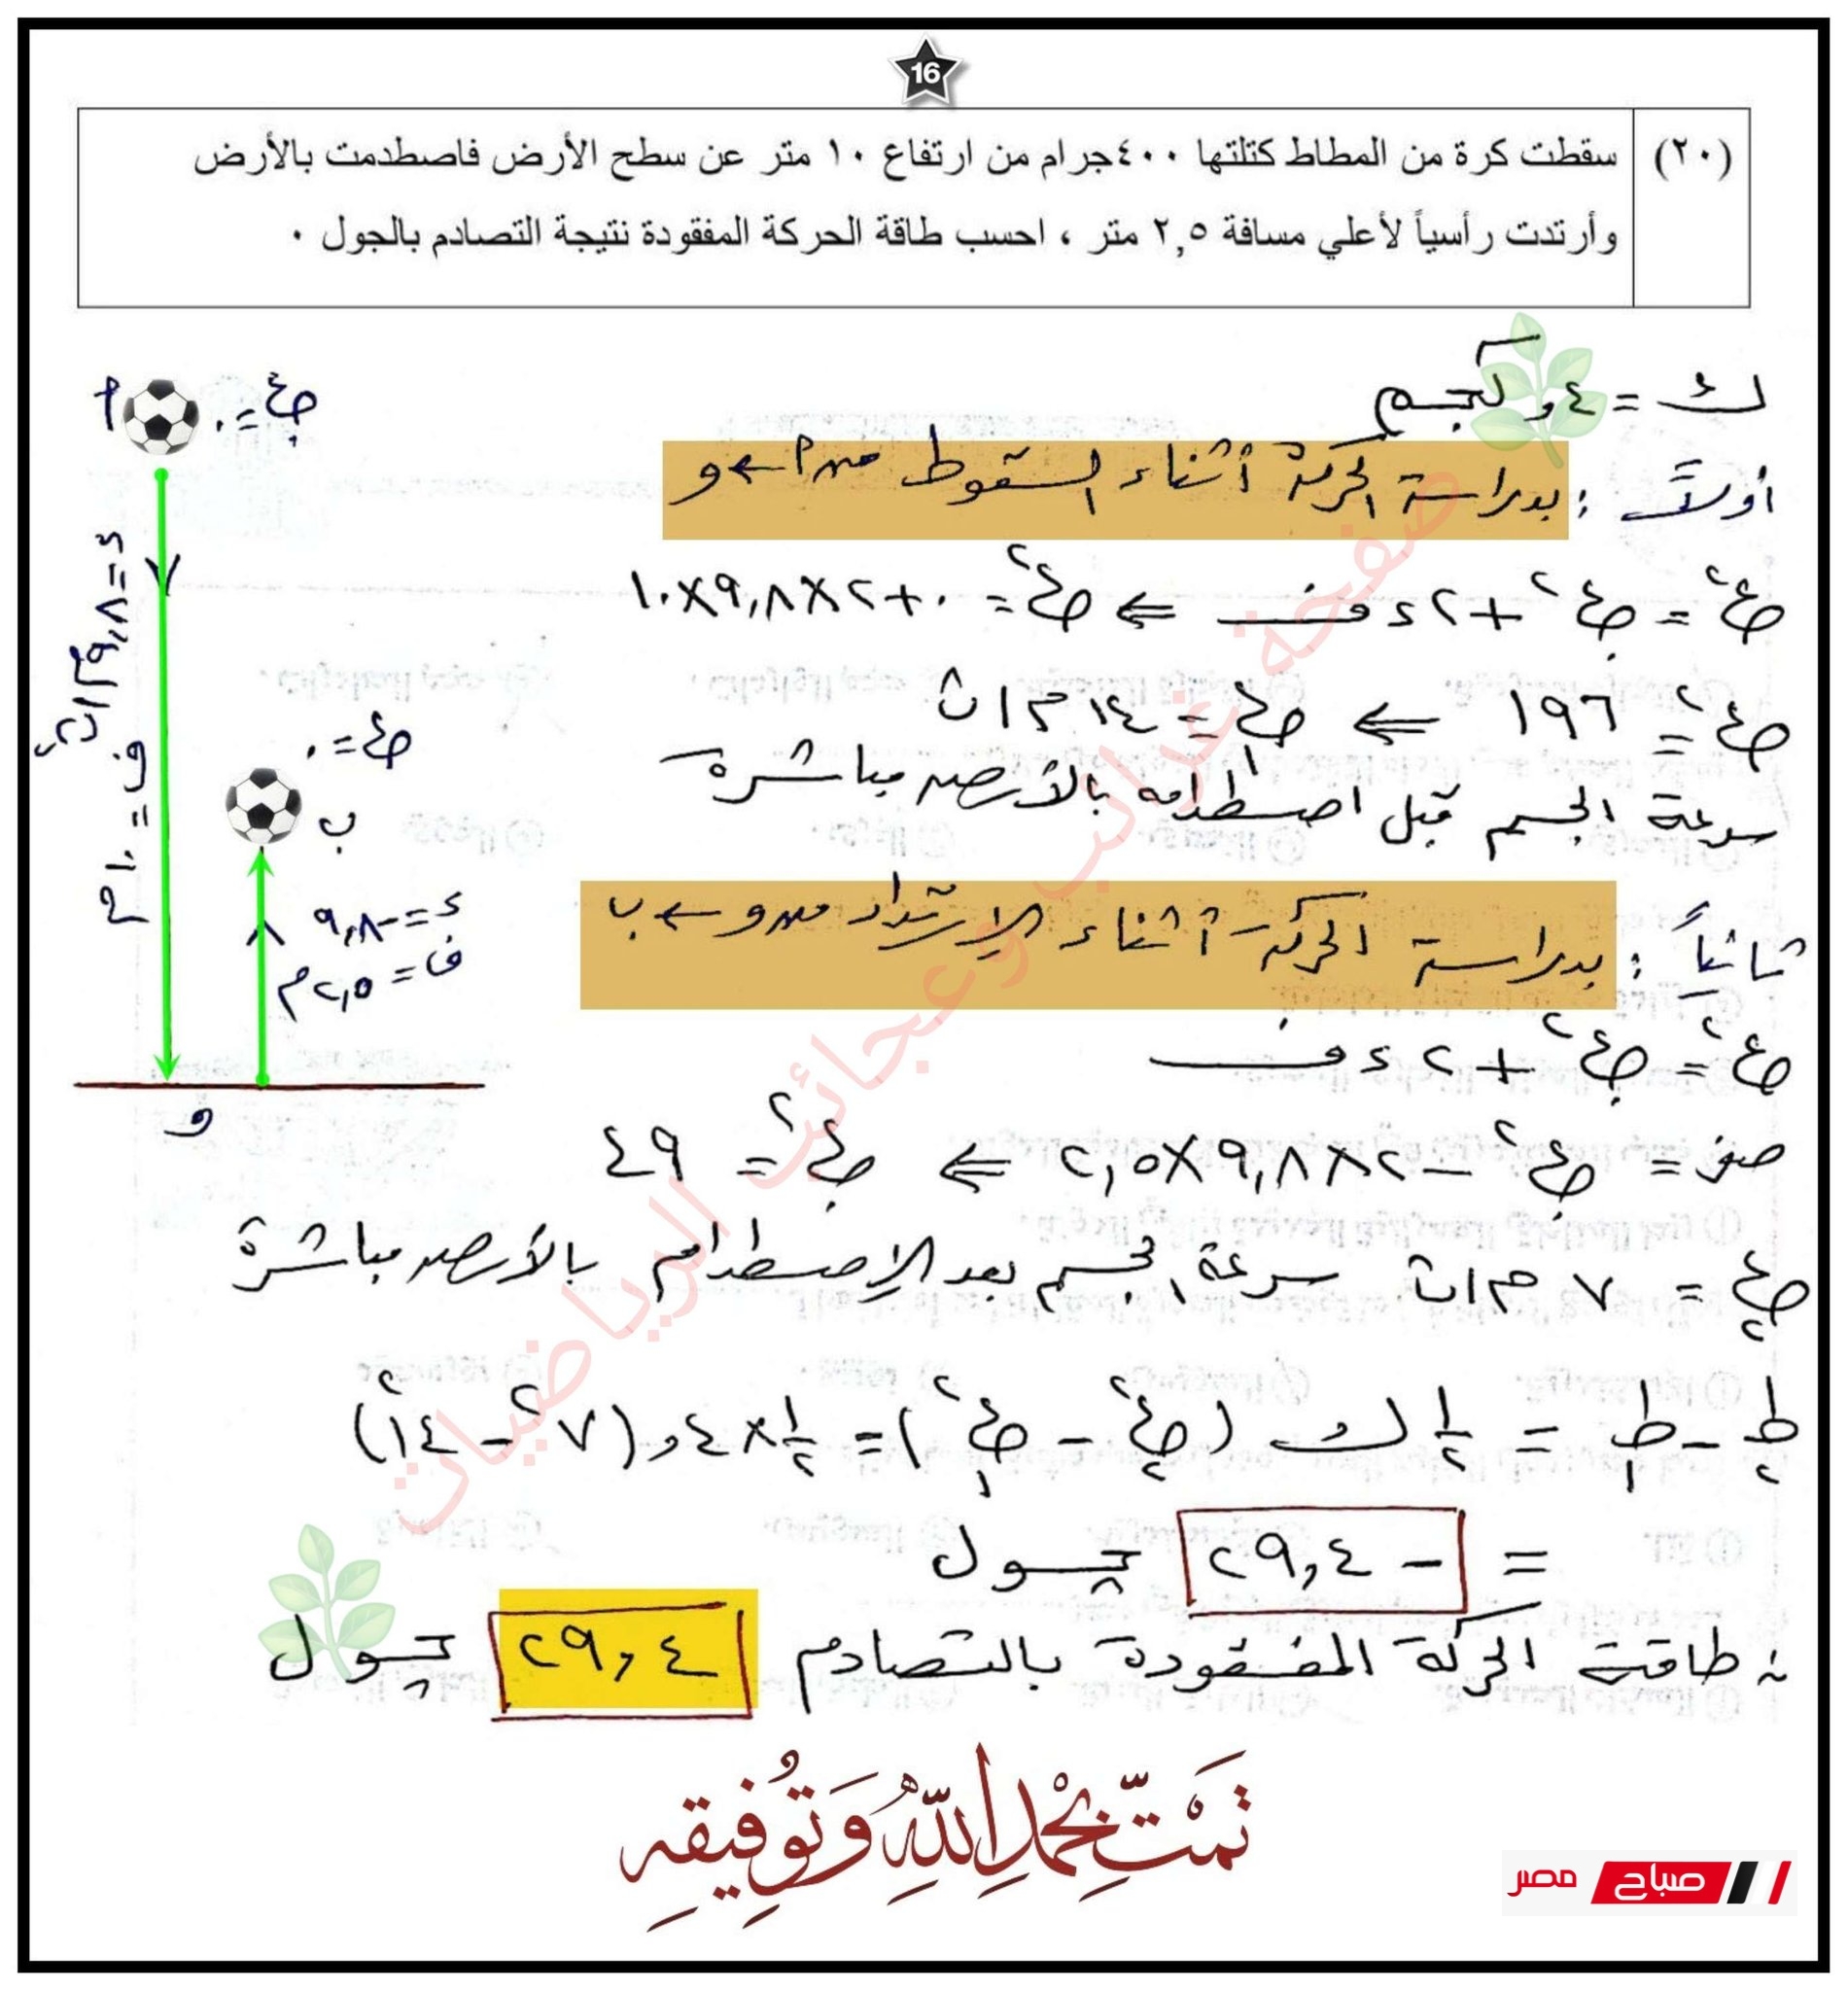 16
(٢٠) سقطت كرة من المطاط كتلتها ٤٠٠جرام من ارتفاع ١٠ متر عن سطح الأرض فاصطدمت بالأرض
وأرتدت رأسياً لأعلي مسافة ٢,٥ متر ، احسب طاقة الحركة المفقودة نتيجة التصادم بالجول ٠
ك = ٤, كجم
أولاً : بدراسة الحركة أثناء السقوط من أ ← و
ع٢ = ع.٢ + ٢ ء ف ⇐ ع٢ = ٠ + ٢×٩,٨×١٠
ع٢ = ١٩٦ ⇐ ع١ = ١٤ م/ث
سرعة الجسم قبل اصطدامه بالأرض مباشرة
ثانياً : بدراسة الحركة أثناء الإرتداد من و ← ب
ع٢ = ع.٢ + ٢ ء ف
صفر = ع.٢ − ٢×٩,٨×٢,٥ ⇐ ع.٢ = ٤٩
ع٢ = ٧ م/ث سرعة الجسم بعد الإصطدام بالأرض مباشرة
ط٢ − ط١ = ١/٢ ك (ع٢٢ − ع١٢) = ١/٢ × ٤, (٧٢ − ١٤٢)
= − ٢٩,٤ جول
∴ طاقة الحركة المفقودة بالتصادم ٢٩,٤ جول
أ
ع. = ٠
ء = ٩,٨ م/ث٢
ف = ١٠ م
ع = ٠
ب
ء = −٩,٨
ف = ٢,٥ م
و
صفحة غرائب وعجائب الرياضيات
تمت بحمد الله وتوفيقه
صباح مصر